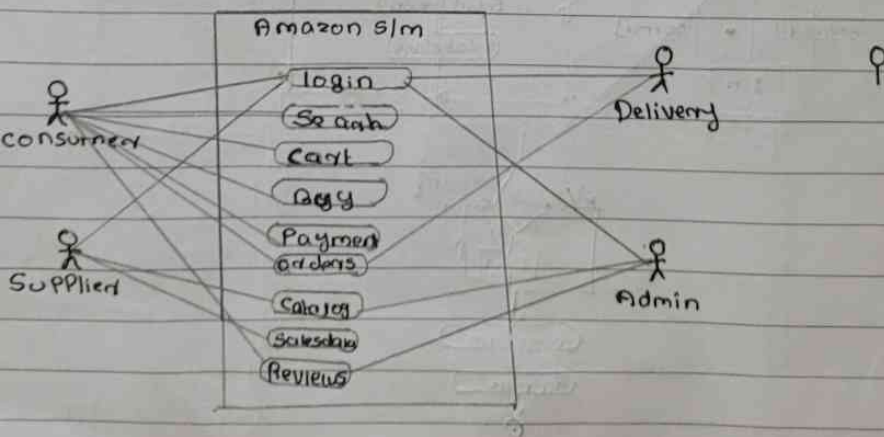 Amazon s/m
login
Search
Cart
Payment
orders
Catalog
Salesdata
Reviews
Consumer
Supplier
Delivery
Admin